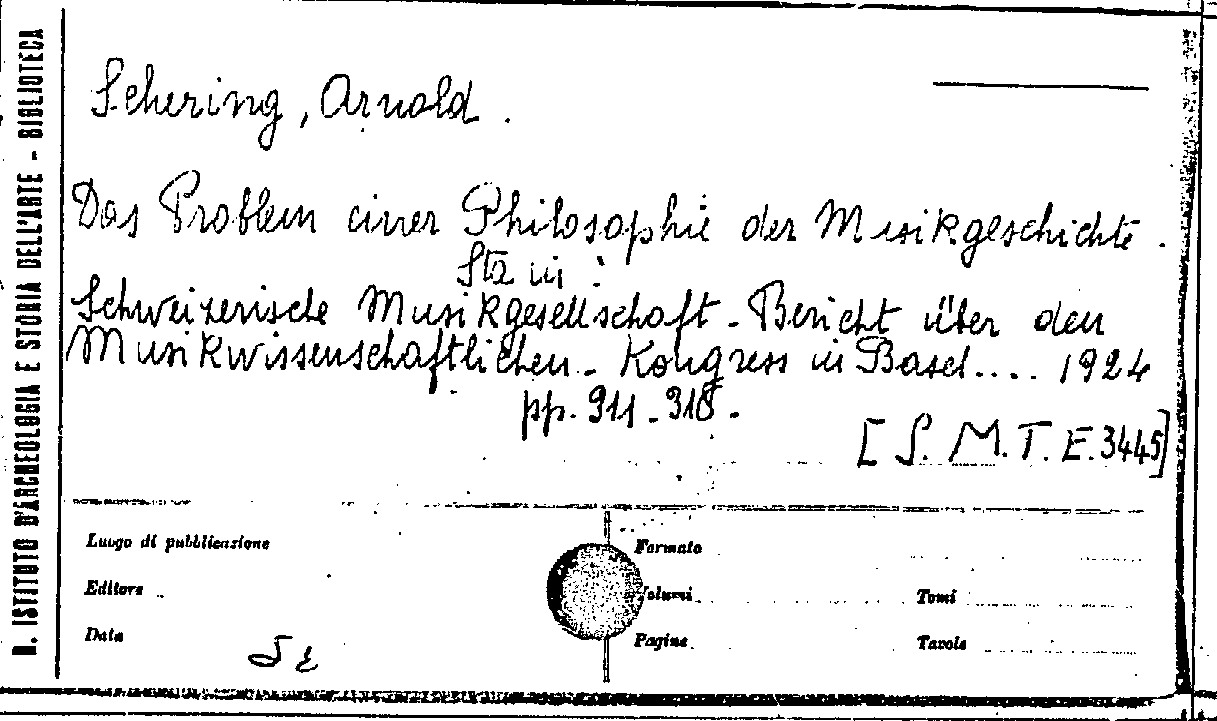 R. ISTITUTO D'ARCHEOLOGIA E STORIA DELL'ARTE - BIBLIOTECA
Schering, Arnold.
Das Problem einer Philosophie der Musikgeschichte.
Sta in:
Schweizerische Musikgesellschaft - Bericht über den
Musikwissenschaftlichen - Kongress in Basel.... 1924
pp. 311-318.
[S. M. T. E. 3445]
Luogo di pubblicazione
Formato
Editore
Volumi
Tomi
Data
Pagine
Tavole